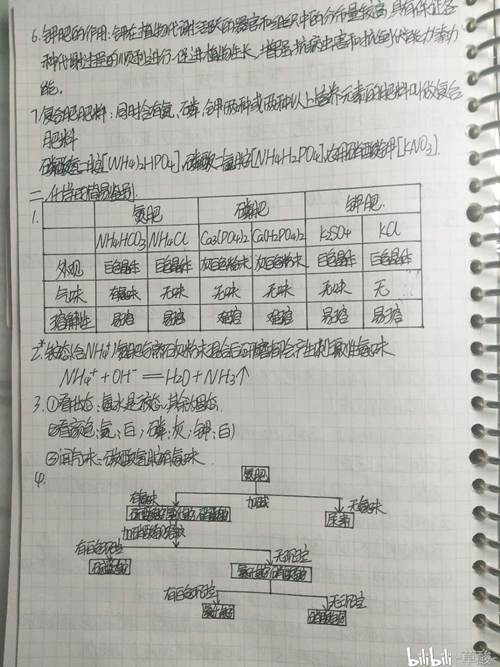 6.钾肥的作用:钾在植物代谢活跃的器官和组织中的分布量较高,具有保证各
种代谢过程的顺利进行,促进植物生长,增强抗病虫害和抗倒伏能力等功
能。
7.复合肥肥料:同时含有氮、磷、钾两种或两种以上营养元素的肥料叫做复合
肥料
磷酸氢二铵[(NH4)2HPO4],磷酸二氢铵[NH4H2PO4]硝酸钾[KNO3]
二、化学肥料的简易鉴别
1.
氮肥 磷肥 钾肥
NH4HCO3 NH4Cl Ca3(PO4)2 Ca(H2PO4)2 K2SO4 KCl
外观 白色晶体 白色晶体 灰白色粉末 灰白色粉末 白色晶体 白色晶体
气味 有氨味 无味 无味 无味 无味 无
溶解性 易溶 易溶 难溶 难溶 易溶 易溶
2.铵态(含NH4+)氮肥与熟石灰粉末混合后研磨都会产生刺激性氨味
NH4+ + OH- = H2O + NH3↑
3.①看状态:氨水是液态,其余为固态
②看颜色:氮:白;磷:灰;钾:白
③闻气味:碳酸氢铵有氨味
4.
氮肥
有氨味 加碱 无氨味
尿素
有白色沉淀 无沉淀
有白色沉淀 无沉淀
bilibili